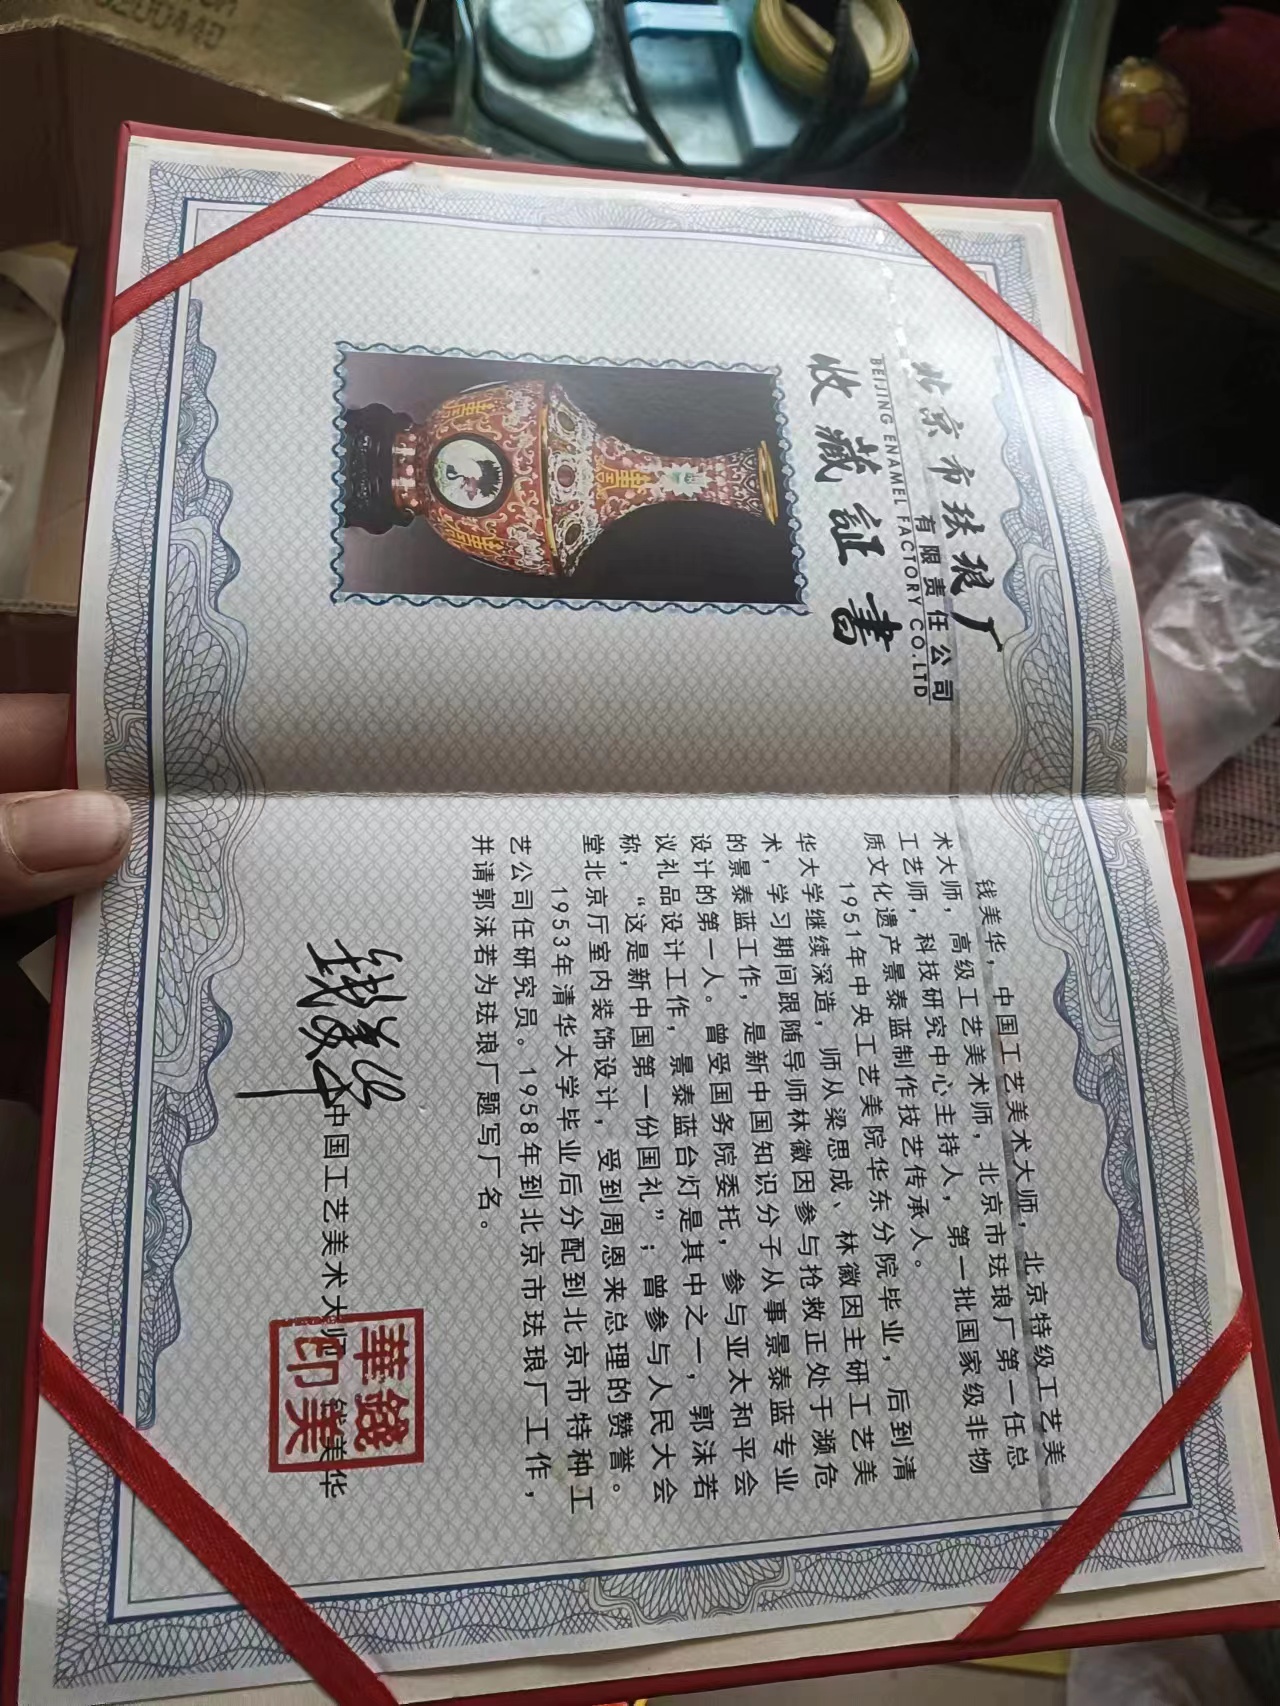 北京市珐琅厂
有限责任公司
BEIJING ENAMEL FACTORY CO.LTD
收藏証書
钱美华，中国工艺美术大师，北京特级工艺美
术大师，高级工艺美术师，北京市珐琅厂第一任总
工艺师，科技研究中心主持人，第一批国家级非物
质文化遗产景泰蓝制作技艺传承人。
1951年中央工艺美院华东分院毕业，后到清
华大学继续深造，师从梁思成、林徽因主研工艺美
术，学习期间跟随导师林徽因参与抢救正处于濒危
的景泰蓝工作，是新中国知识分子从事景泰蓝专业
设计的第一人。曾受国务院委托，参与亚太和平会
议礼品设计工作，景泰蓝台灯是其中之一，郭沫若
称，“这是新中国第一份国礼”；曾参与人民大会
堂北京厅室内装饰设计，受到周恩来总理的赞誉。
1953年清华大学毕业后分配到北京市特种工
艺公司任研究员。1958年到北京市珐琅厂工作，
并请郭沫若为珐琅厂题写厂名。
中国工艺美术大师 钱美华
钱美华
錢美
華印